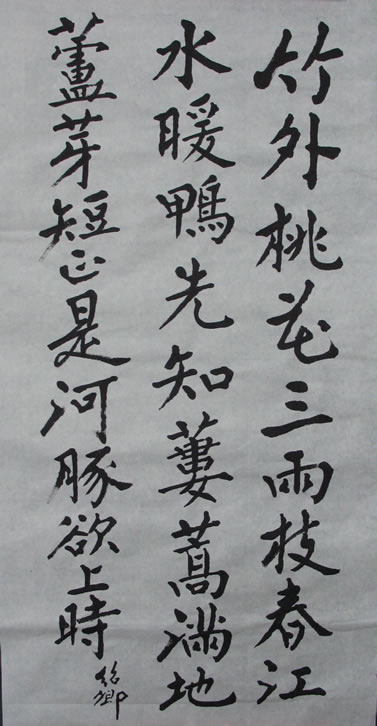 竹外桃花三兩枝春江
水暖鴨先知蔞蒿滿地
蘆芽短正是河豚欲上時
卿